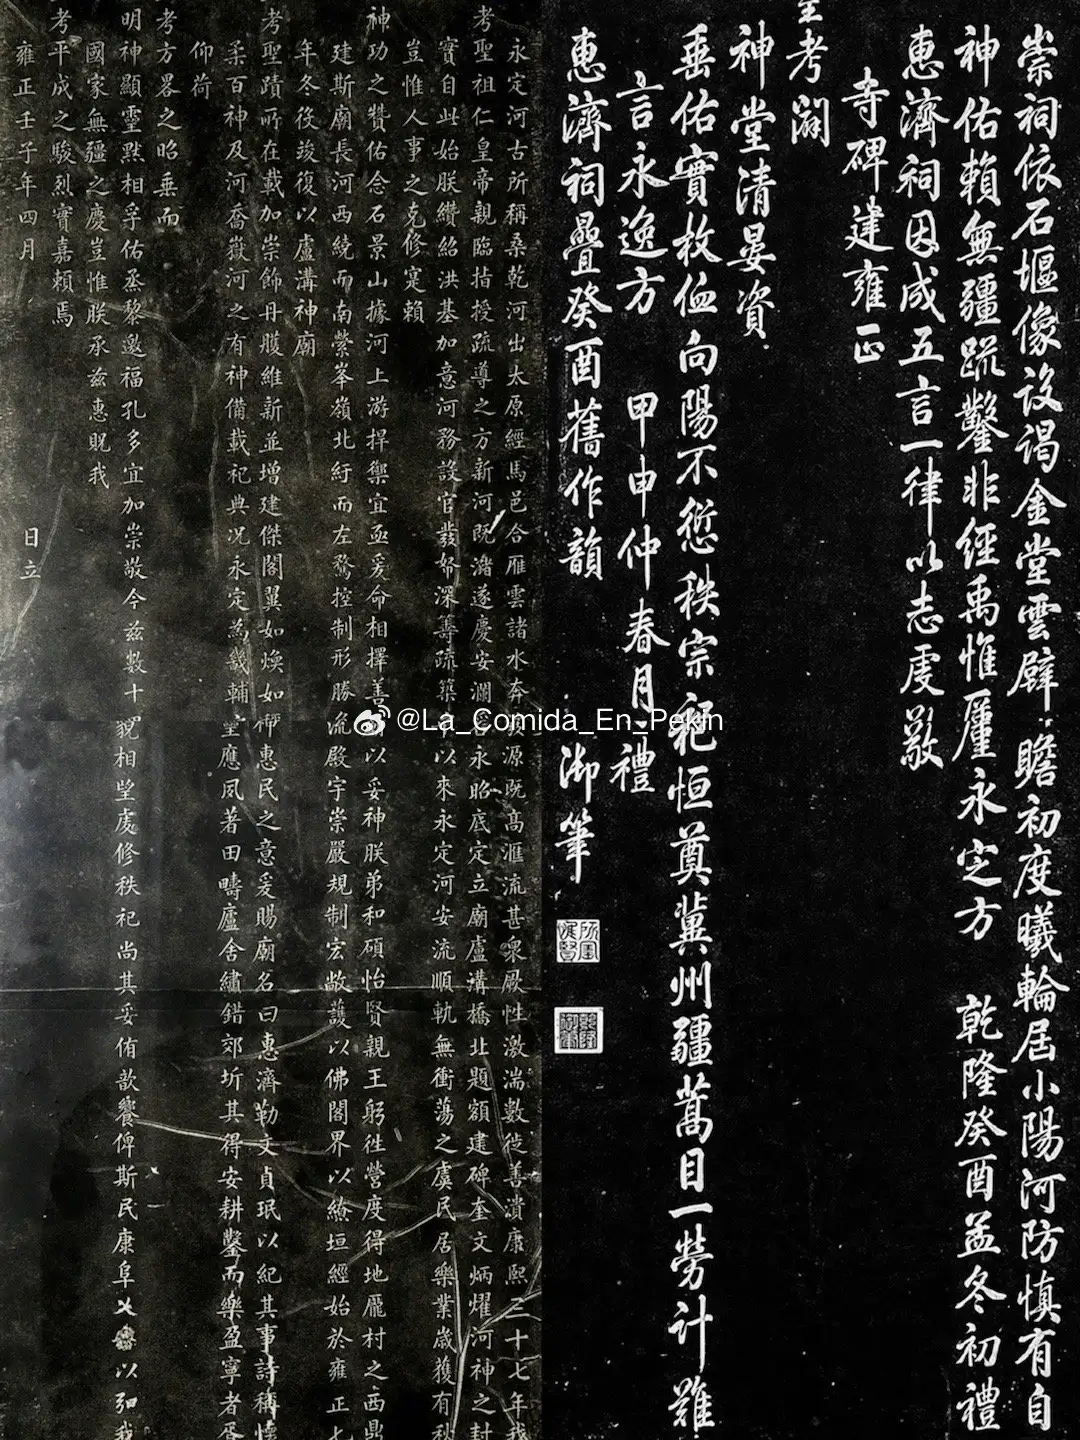 崇祠依石堰像設謁金堂雲壁瞻初度曦輪居小陽河防慎有自
神佑賴無疆疏鑿非經禹惟釐永定方 乾隆癸酉孟冬初禮
惠濟祠因成五言一律以志虔敬
寺碑建雍正
考
神堂清晏資
垂佑實枚侐向陽不愆秩宗祀恒奠冀州疆蒿目一勞計難
言永逸方 甲申仲春月禮
惠濟祠疊癸酉舊作韻 御筆
永定河古所稱桑乾河出太原經馬邑合雁雲諸水奔源既高滙流甚衆厥性激湍數徙善潰康熙三十七年我
考聖祖仁皇帝親臨指授疏導之方新河既濬遂慶安瀾永昭底定立廟盧溝橋北題額建碑奎文炳燿河神之封
實自此始朕纘紹洪基加意河務設官發帑深籌疏築以來永定河安流順軌無衝蕩之虞民居樂業歲獲有秋
豈惟人事之克修寔賴
神功之贊佑念石景山據河上游捍禦宜亟爰命相擇善以妥神朕弟和碩怡賢親王躬往營度得地龎村之西鼎
建斯廟長河西繞而南縈峯嶺北紆而左騖控制形勝流殿宇崇嚴規制宏敞護以佛閣界以繚垣經始於雍正七
年冬後竣復以盧溝神廟
考聖蹟所在載加崇飾丹雘維新並增建傑閣翼如煥如惠民之意爰賜廟名曰惠濟勒文貞珉以紀其事詩稱懷
柔百神及河喬嶽河之有神備載祀典况永定為畿輔望應夙著田疇廬舍繡錯郊圻其得安耕鑿而樂盈寧者胥
仰荷
考方畧之昭垂而
明神顯靈黙相孚佑烝黎邀福孔多宜加崇敬今茲數十貌相望虔修秩祀尚其妥侑歆饗俾斯民康阜以弘我
國家無疆之慶豈惟朕承茲惠貺我
考平成之駿烈實嘉賴焉
雍正壬子年四月 日立
@La_Comida_En_Pekin